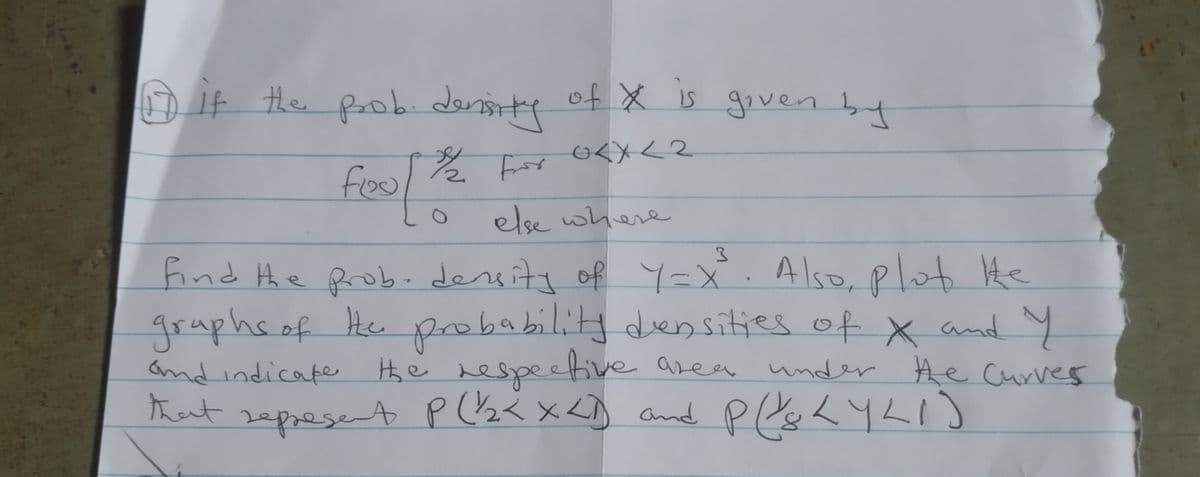 ⑰ if the prob. density of X is given by
f(x) { x/2 for 0<X<2
0 else where
find the prob. density of Y=X³. Also, plot the
graphs of the probability densities of X and Y
and indicate the respective area under the curves
that represent P(1/2<X<1) and P(1/8<Y<1)